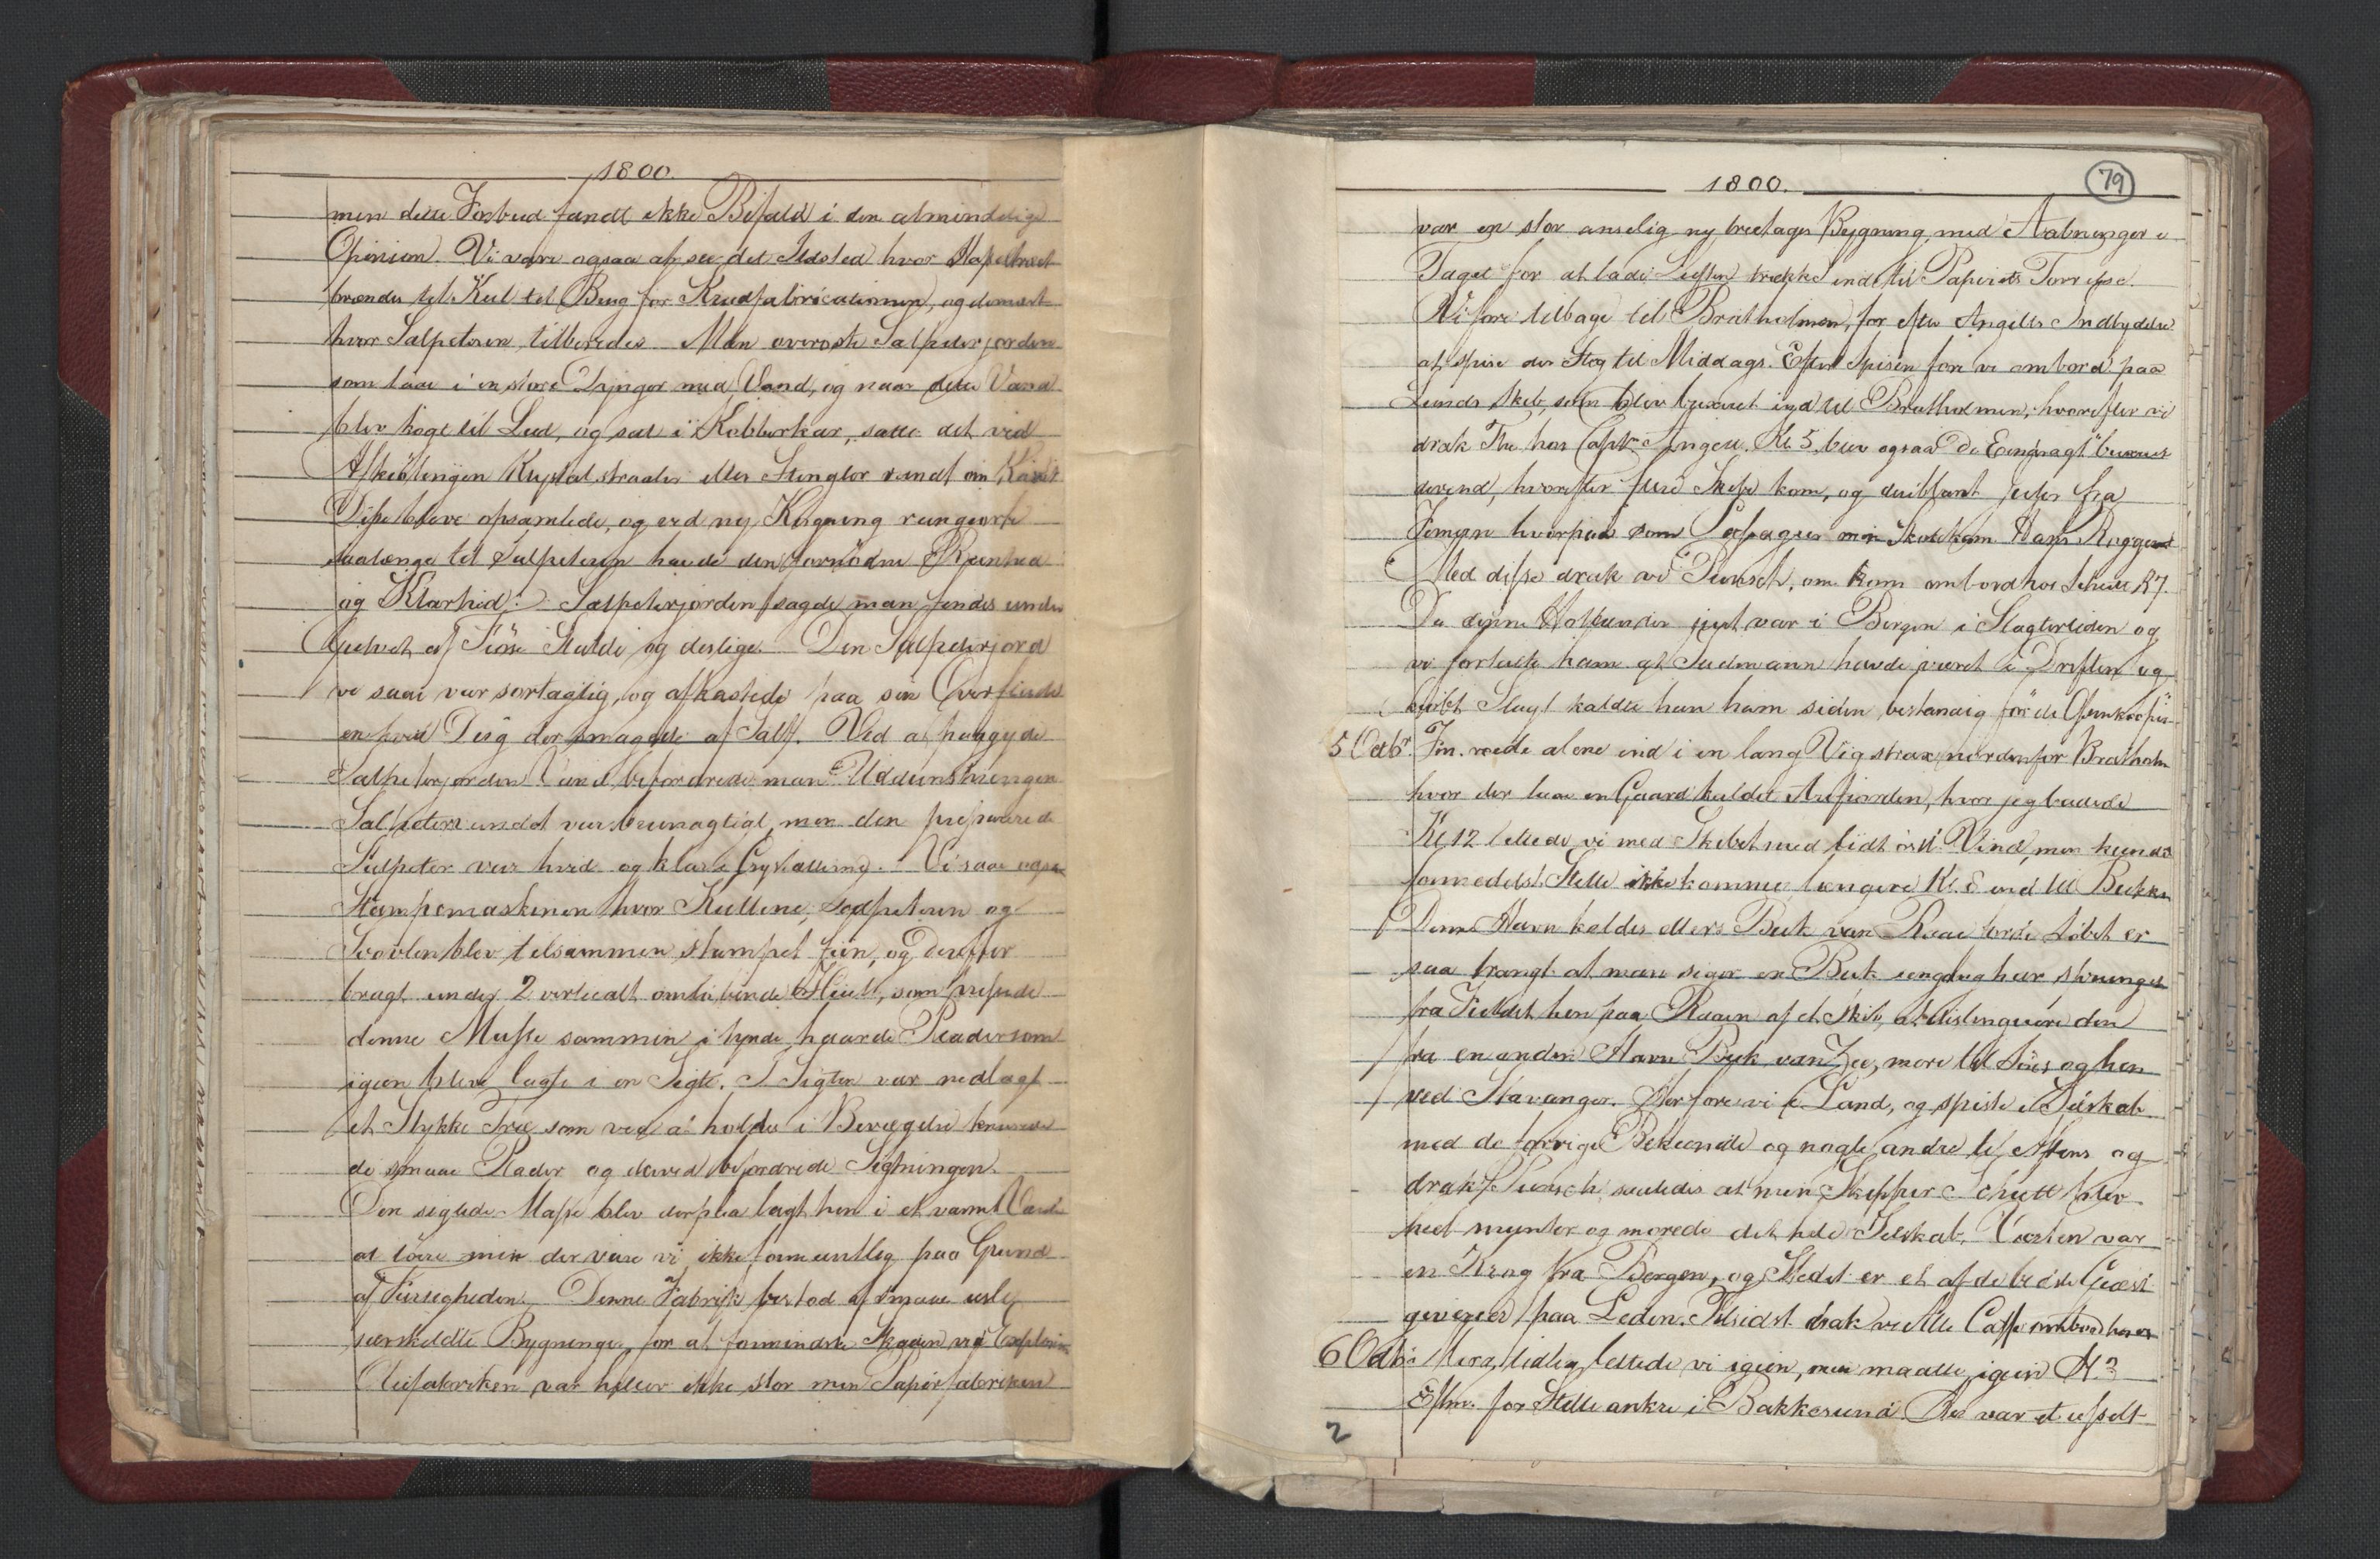 1800.
men dette Forbud fandt ikke Bifald i den almindelige
Opinion. Vi vare ogsaa at see det Ildsted hvor
brændes til Kul til Brug for Krudfabricationen, og dernæst
hvor Salpeteren tilberedes. Man overöste Salpeterjorden
som laae i en store Dynger med Vand, og naar dette Vand
blev kogt til Lud, og sat i Kobberkar, satte det ved
Afkiölingen Krystalstraaler eller Stengler rundt om Karret
Disse bleve opsamlede, og ved ny Kogning rengiorte
saalænge til Salpeteren havde den fornödne Reenhed
og Klarhed. Salpeterjorden sagde man findes under
Gulvet af Stalde og deslige. Den Salpeterjord
vi saae var sortagtig, og afkastede paa sin Overflade
en hvid Deig der smagede af Salt. Ved at paagyde
Salpeterjorden Vand befordrede man Uddunstningen
Salpetervandet var bruunagtigt, men den præparerede
Salpeter var hvid og klar i Crystallering. Vi saae ogsaa
Stampemaskinen hvor Kullene, Salpeteren og
Svovlen blev tilsammen stampet fiin, og derefter
bragt under 2 verticalt omlöbende Hiul, som pressede
denne Masse sammen i tynde haarde Plader som
igien bleve lagte i en Sigte. I Sigten var nedlagt
et Stykke Træ som ved at holdes i Bevægelse knuuste
de smaae Plader og derved befordrede Sigtningen.
Den sigtede Masse blev derpaa lagt hen i et varmt
at törre men der vare vi ikke formeentlig paa Grund
af Farligheden. Denne Fabrik bestod af smaae usle
særskildte Bygninger, for at formindske Skaden ved Explosion
Oliefabriken var heller ikke stor men Papirfabriken
1800.
79
var en stor anselig ny treetages Bygning med Aabninger i
Taget for at lade Luften trække ind til Papirets Törrelse.
Vi fore tilbage til Bratholmen, for efter Angells Indbydelse
at spise der Steg til Middags. Efter Spisen fore vi ombord paa
Lunds Skib, som blev buxeret ind til Bratholmen, hvorefter vi
drak The hos Captn Angell. Kl 5 blev ogsaa De Eendragt buxeret
derind, hvorefter flere Skibe kom, og deriblant Jester fra
hvorpaa som Passageer min Skolekam. Hans
Med disse drak vi Punsch, om kom ombord hos Schutt Kl 7.
Da denne Hollænder just var i Bergen i Slagtertiden og
vi fortalte ham at Sudmann havde været i Driften og
kiöbt Slagt kaldte han ham siden bestandig for de Ossenkooper
5 Octbr. Fm. roede alene ind i en lang Vig strax nordenfor Bratholm
hvor der laae en Gaard kaldet Arefjorden, hvor jeg badede
Kl 12 lettede vi med Skibet med lidt östl. Vind, men kunde
formedelst Stille ikke komme længere Kl. 8 end til Bukken
Denne Havn kaldes ellers Buk van Raae fordi Löbet er
saa trangt at man siger en Buk eengang har sprunget
fra Fieldet hen paa Raaen af et Skib, at distinguere den
fra en anden Havn Buk van Zee, mere til Söes og hen
ved Stavanger. Her fore vi i Land, og spiste i Selskab
med de forrige Bekiendte og nogle andre til Aftens og
drak Punsch, saaledes at min Skipper Schutt blev
heel munter og morede det hele Selskab. Værten var
en Krog fra Bergen, og Stedet er et af de bedste Giæst
giverier paa Leden. Tilsidst drak vi Alle Caffe ombord hos os
6 Octbr. Meget tidlig lettede vi igien, men maatte igien Kl. 3
Eftm. for Stille ankre i Bakkesund. Der var et usselt
2